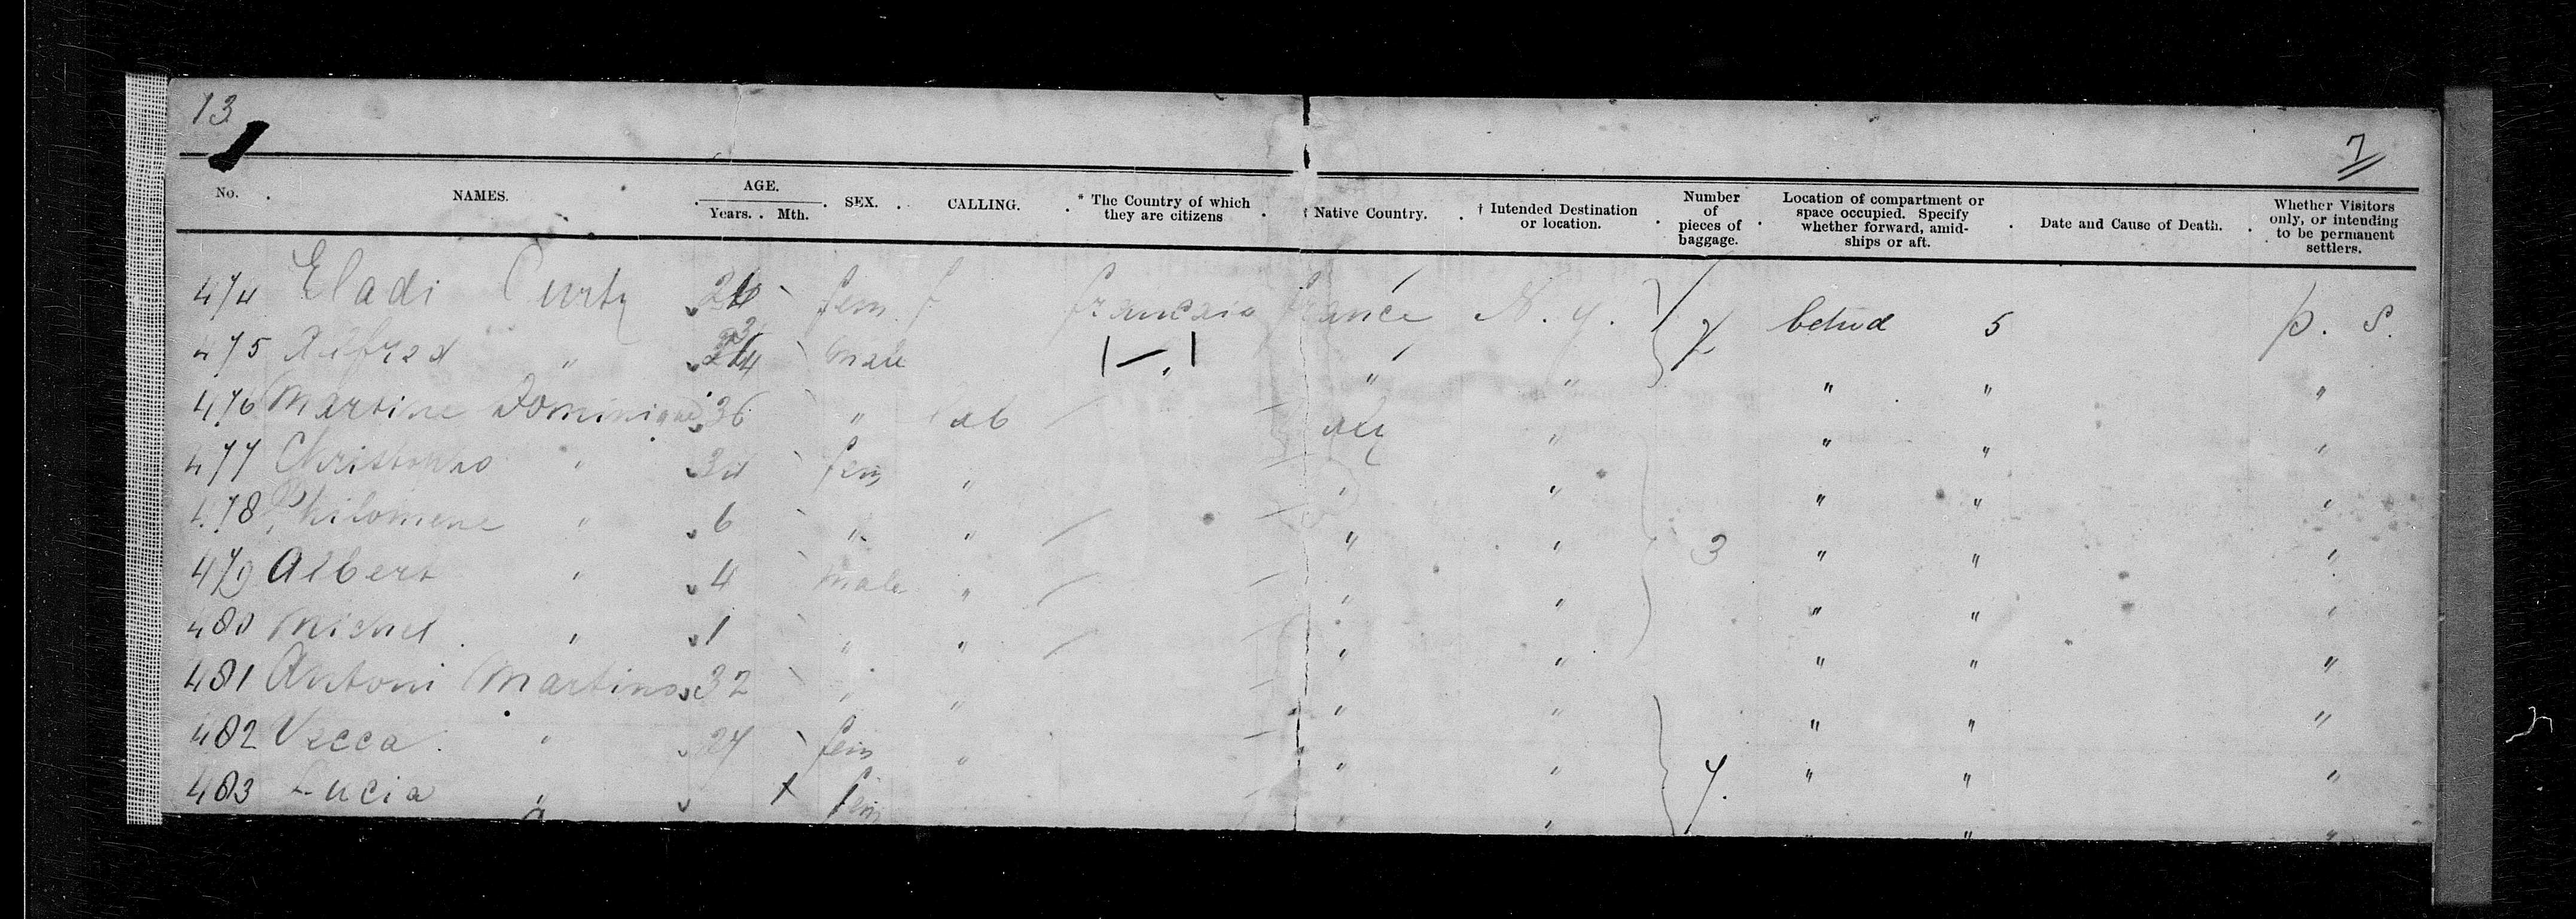 13
7
No. NAMES. AGE. Years. Mth. SEX. CALLING. * The Country of which they are citizens † Native Country. † Intended Destination or location. Number of pieces of baggage. Location of compartment or space occupied. Specify whether forward, amidships or aft. Date and Cause of Death. Whether Visitors only, or intending to be permanent settlers.
474 Eladi Curtz fem france N. Y. 2 betwd 5 p. S.
475 Alfred " male " " " " " "
476 Martine Dominique 36 " " " " "
477 34 fem " " " " " "
478 Philomene " 6 " " " " " " "
479 Albert " 4 male " " " 3 " " "
480 Michel " 1 " " " " " " "
481 Antoni Martino 32 " " " " " " "
482 Vecca " 27 fem " " " " " "
483 Lucia " fem " " 4. " " "